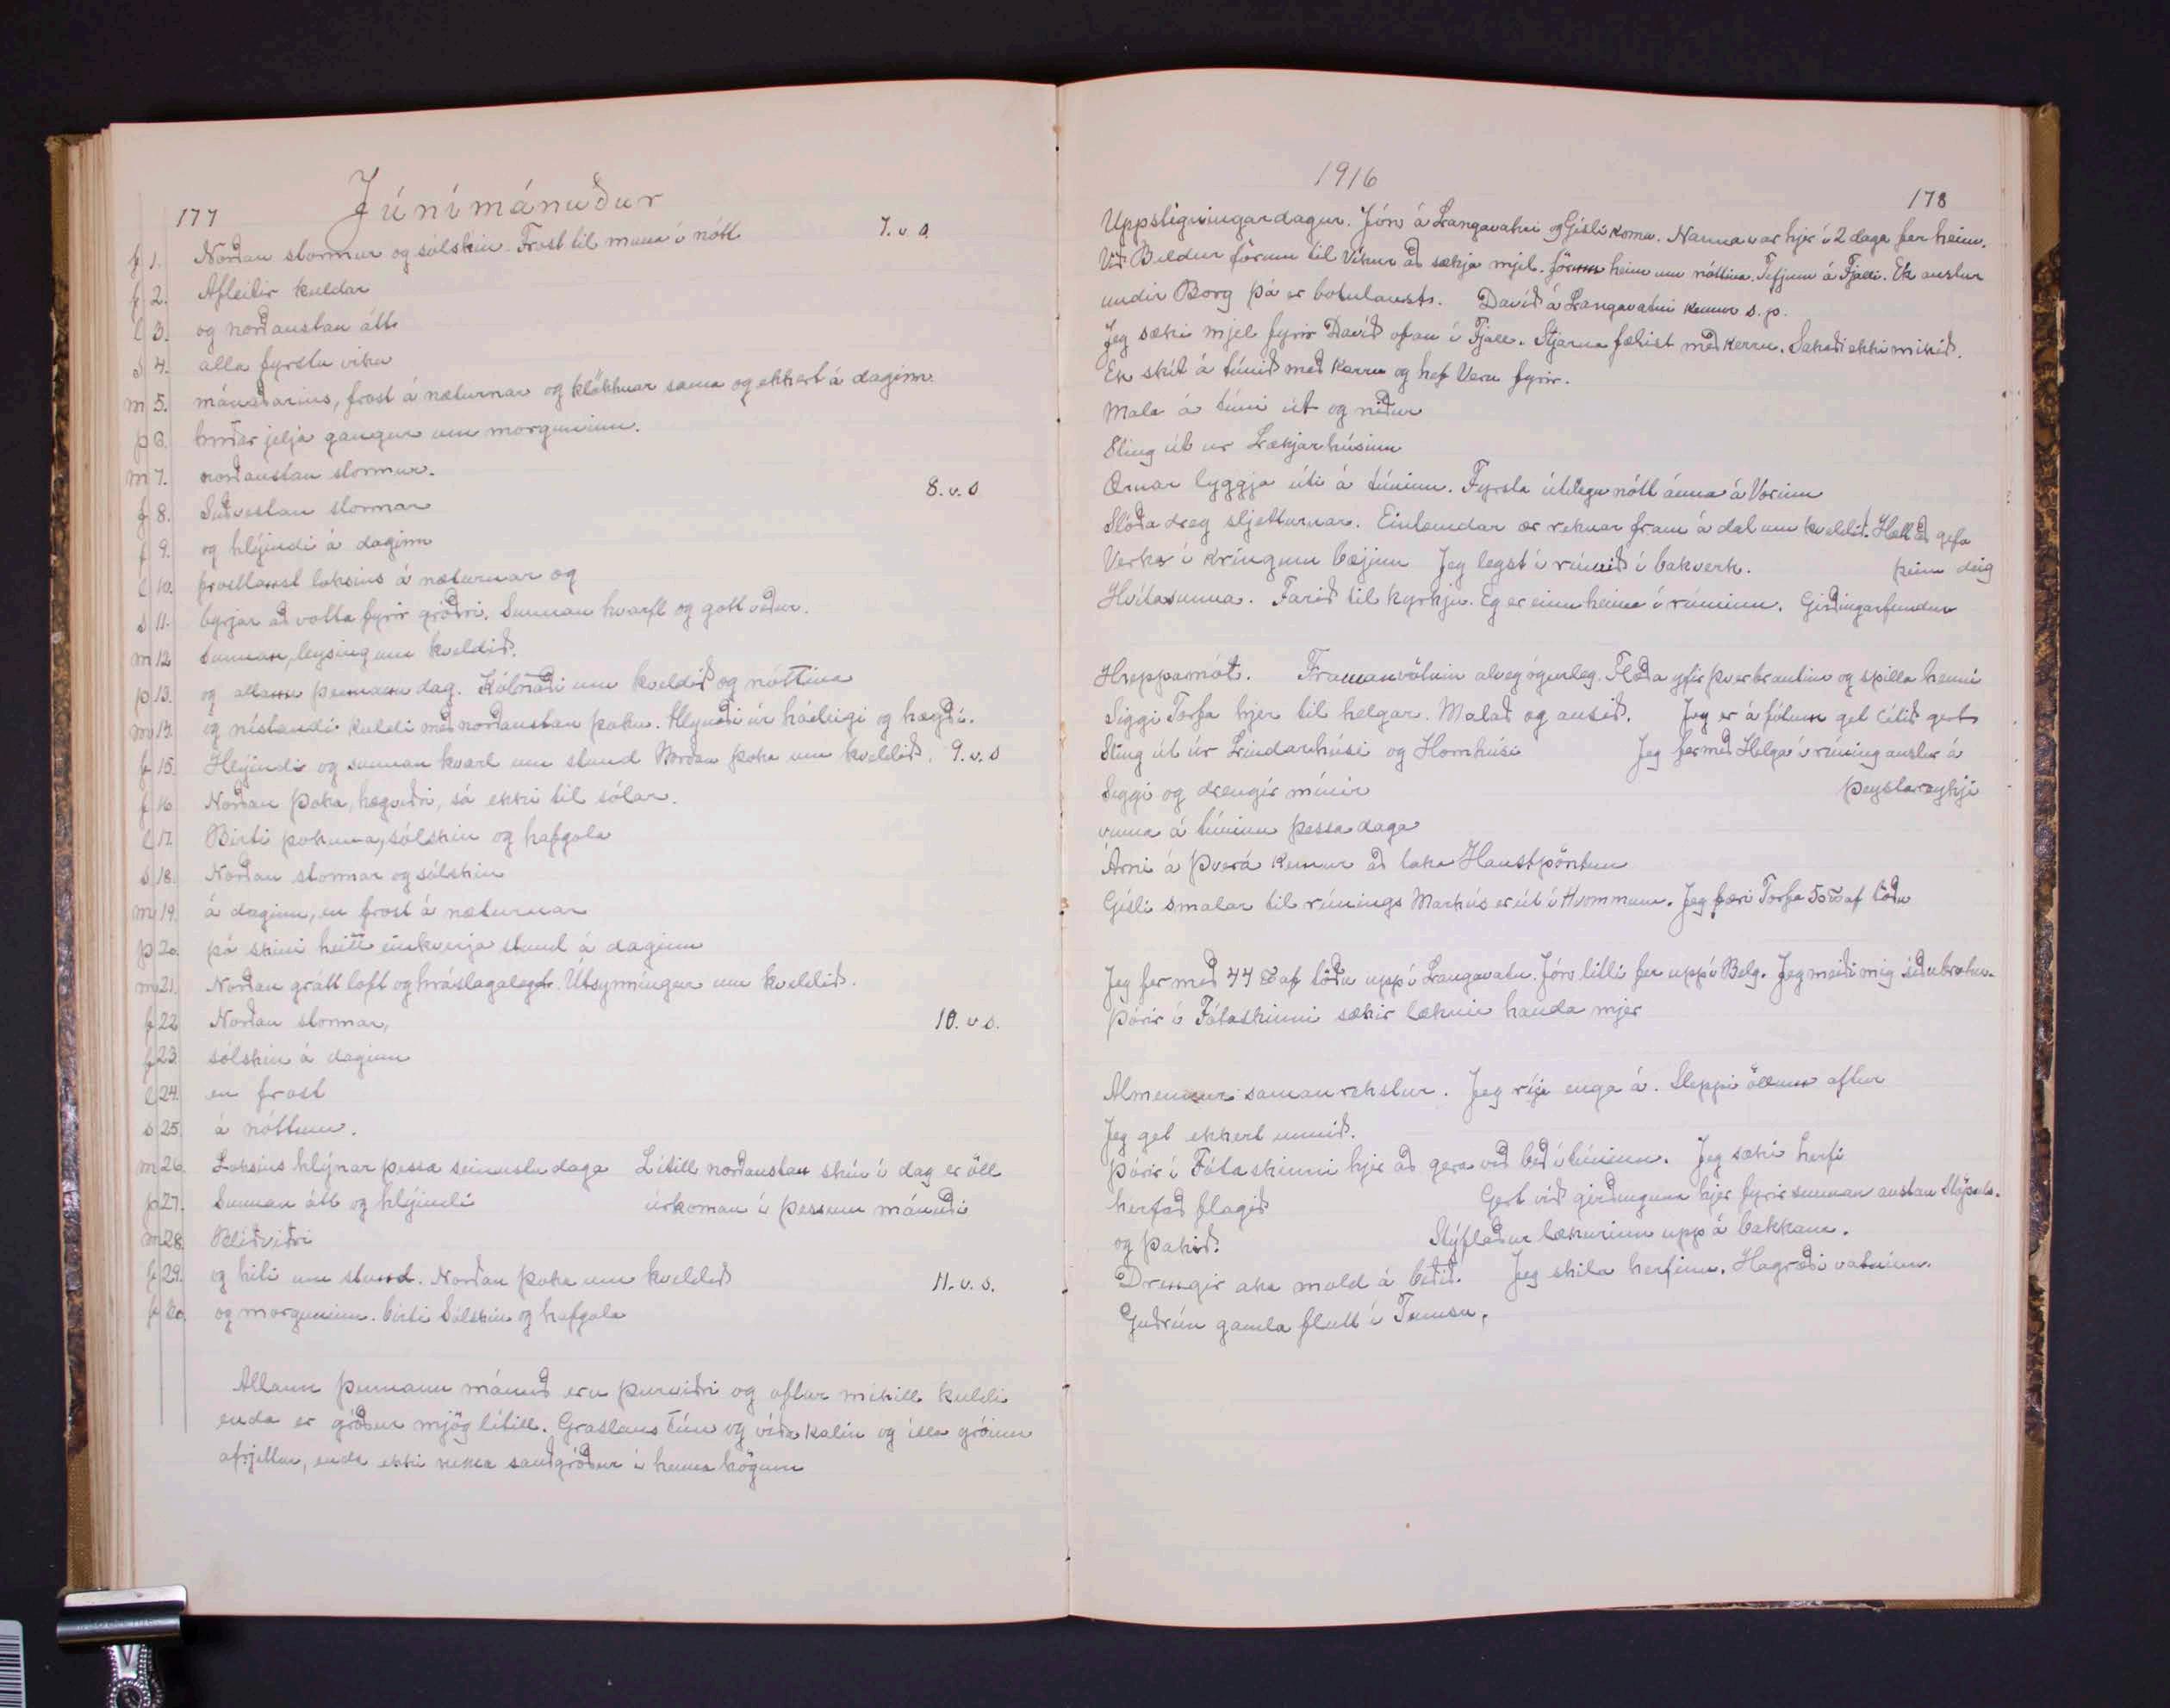 177
Júnímánuður
f 1. Norðan stormur og sólskin. Frost til muna í nótt 7. v. s.
f 2. Afleitir kuldar
l 3. og norðaustan átt
s 4. alla fyrstu viku
m 5. mánaðarins, frost á næturnar og klökknar sama og ekkert á daginn.
þ 6. jelja gangur um morguninn.
m 7. norðaustan stormur.
f 8. Suðvestan stormar 8. v. s
f 9. og hlýindi á daginn
l 10. frostlaust loksins á næturnar og
s 11. byrjar að votta fyrir gróðri. Sunnan hvarfl og gott veður.
m 12 Sunnan, leysing um kveldið.
þ 13. og allann þennann dag. Kólnaði um kveldið og nóttina
m 14. og nístandi kuldi með norðaustan þoku. Hlýnaði úr hádeigi og hægði.
f 15. Hlýindi og sunnan kvarl um stund Norðan þoka um kveldið. 9. v. s
f 16. Norðan þoka, hægviðri, sá ekki til sólar.
l 17. Birti þokuna, sólskin og hafgola
s 18. Norðan stormar og sólskin
m 19. á daginn, en frost á næturnar
þ 20. þá skini heitt einhverja stund á daginn
m 21. Norðan grátt loft og hráslagalegt. Útsynningur um kveldið.
f 22 Norðan stormar, 10. v s.
f 23. sólskin á daginn
l 24. en frost
s 25. á nóttunn.
m 26. Loksins hlýnar þessa seinustu daga Lítill norðaustan skúr í dag er öll
þ 27. Sunnan átt og hlýindi úrkoman í þessum mánuði
m 28. Blíðviðri
f 29. og hiti um stund. Norðan þoka um kveldið 11. v. s.
f 30. og morguninn. birti Sólskin og hafgola
Allann þennann mánuð eru þurviðri og oftar mikill kuldi
enda er gróður mjög lítill. Graslaus tún og víða kalin og illa gróinn
afrjettur, enda ekki nema sauðgróður í heima högum
1916
178
Uppstigningardagur. Jón á Langavatni og Gísli koma. Nanna var hjer í 2 daga fer heim.
Við Baldur förum til Víkur að sækja mjel. förum heim um nóttina. Tefjum á Fjalli. Ek austur
undir Borg þá er botulaust. Davíð á Langavatni kemur s. p.
Jeg sæki mjel fyrir Davíð ofan í Fjall. Stjarna fælist með kerru. Sakaði ekki mikið.
Ek skít á túnið með kerru og hef Veru fyrir.
Mala á túni út og niður
Sting út úr Lækjarhúsinu
Ærnar lyggja úti á túninu. Fyrsta útilegu nótt ánna á Vorinu
Slóða dreg sljetturnar. Einlemdar ær reknar fram á dal um kveldið. Hætt að gefa
Verka í kringum bæjinn Jeg legst í rúmið í bakverk. þeim deig
Hvítasunna. Farið til kyrkju. Eg er einn heima í rúminu. Girðingarfundur
Hreppamót. Framanvötnin alveg ógurleg. Flæða yfir þverbrautina og spilla henni
Siggi Torfa hjer til helgar. Malað og ausið. Jeg er á fótum get lítið gert
Sting út úr Lindarhúsi og Hornhúsi Jeg fer með Helga í rúning austur á
Siggi og drengir mínir Þeystareykji
vinna á túninu þessa daga
Árni á Þverá kemur að taka Haustpöntun
Gísli smalar til rúnings Markús er út í Hvommum. Jeg færi Torfa 50 ℔ af töðu
Jeg fer með 44 ℔ af töðu upp í Langavatn. Jón litli fer upp í Belg. Jeg meiði mig síðubrotur.
Þórir í Fótaskinni sækir læknir handa mjer
Almennur samanrekstur. Jeg rýi enga á. Sleppi öllum aftur
Jeg get ekkert unnið.
Þórir í Fótaskinni hjer að gera við beð í túninu. Jeg sæki herfi
herfað flagið Gert við girðinguna hjer fyrir sunnan austan
og þakið. Stýflaður lækurinn upp á bakkann.
Drengir aka mold á beðið. Jeg skila herfinu. Hagræði vatninu.
Guðrún gamla flutt í Tumsu.